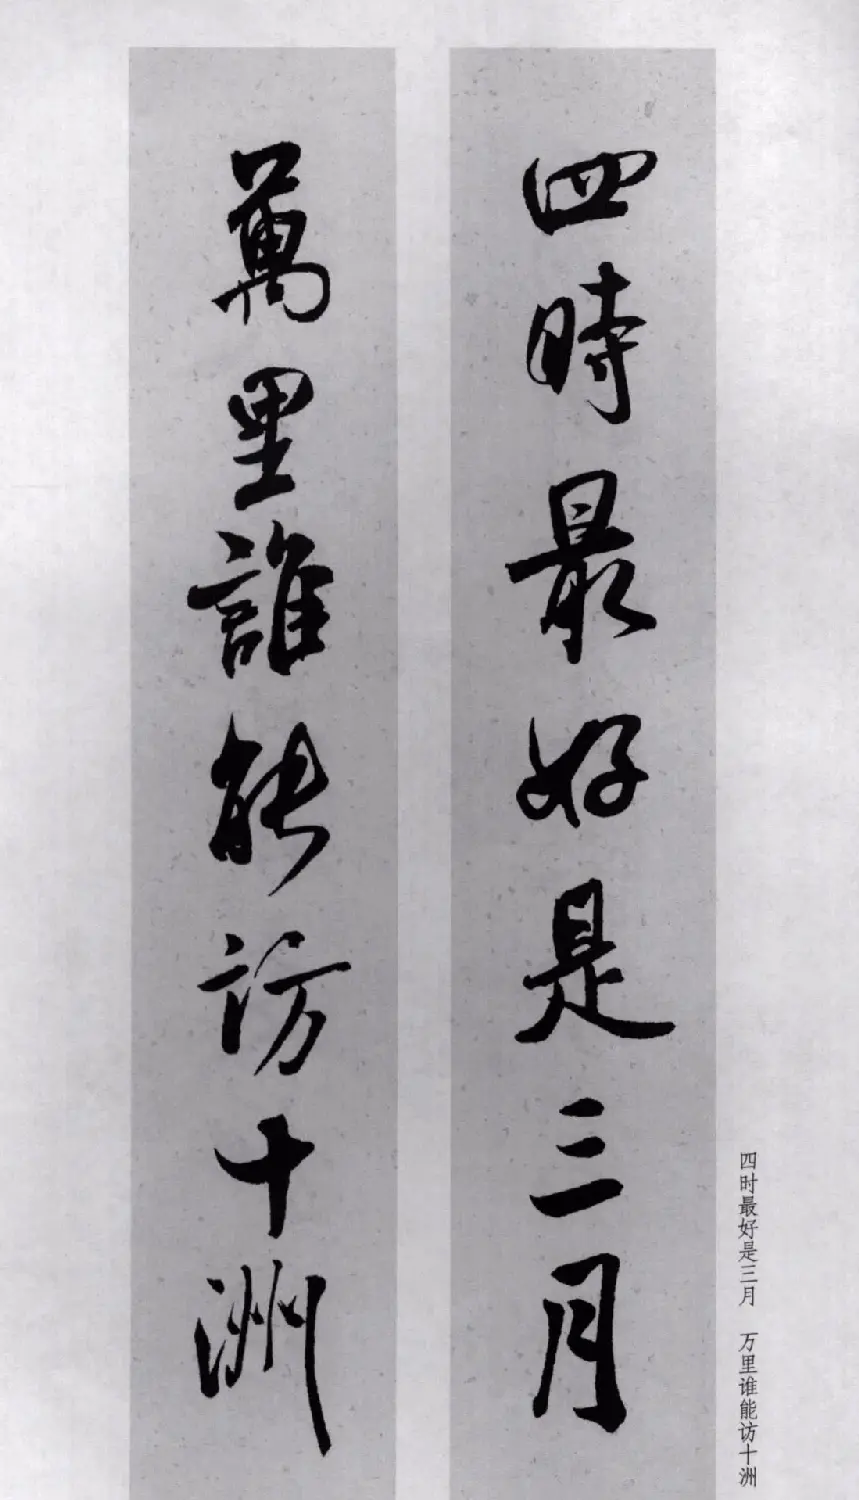 四時最好是三月
萬里誰能訪十洲
四时最好是三月 万里谁能访十洲